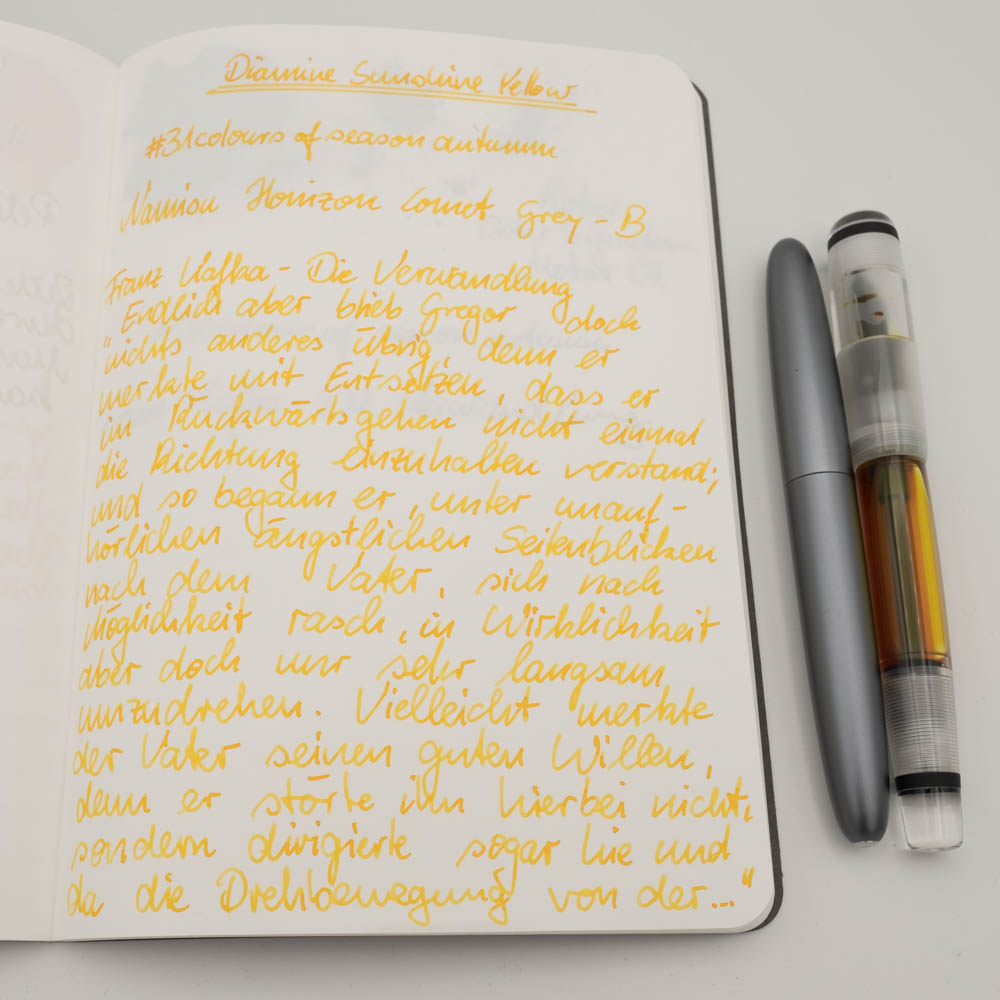 Diamine Sunshine Yellow
#31colours of season autumn
Namisu Horizon Comet Grey - B
Franz Kafka - Die Verwandlung
"Endlich aber blieb Gregor doch
nichts anderes übrig, denn er
merkte mit Entsetzen, dass er
im Rückwärtsgehen nicht einmal
die Richtung einzuhalten verstand;
und so begann er, unter unauf-
hörlichen ängstlichen Seitenblicken
nach dem Vater, sich nach
Möglichkeit rasch, in Wirklichkeit
aber doch nur sehr langsam
umzudrehen. Vielleicht merkte
der Vater seinen guten Willen,
denn er störte ihn hierbei nicht,
sondern dirigierte sogar hie und
da die Drehbewegung von der..."